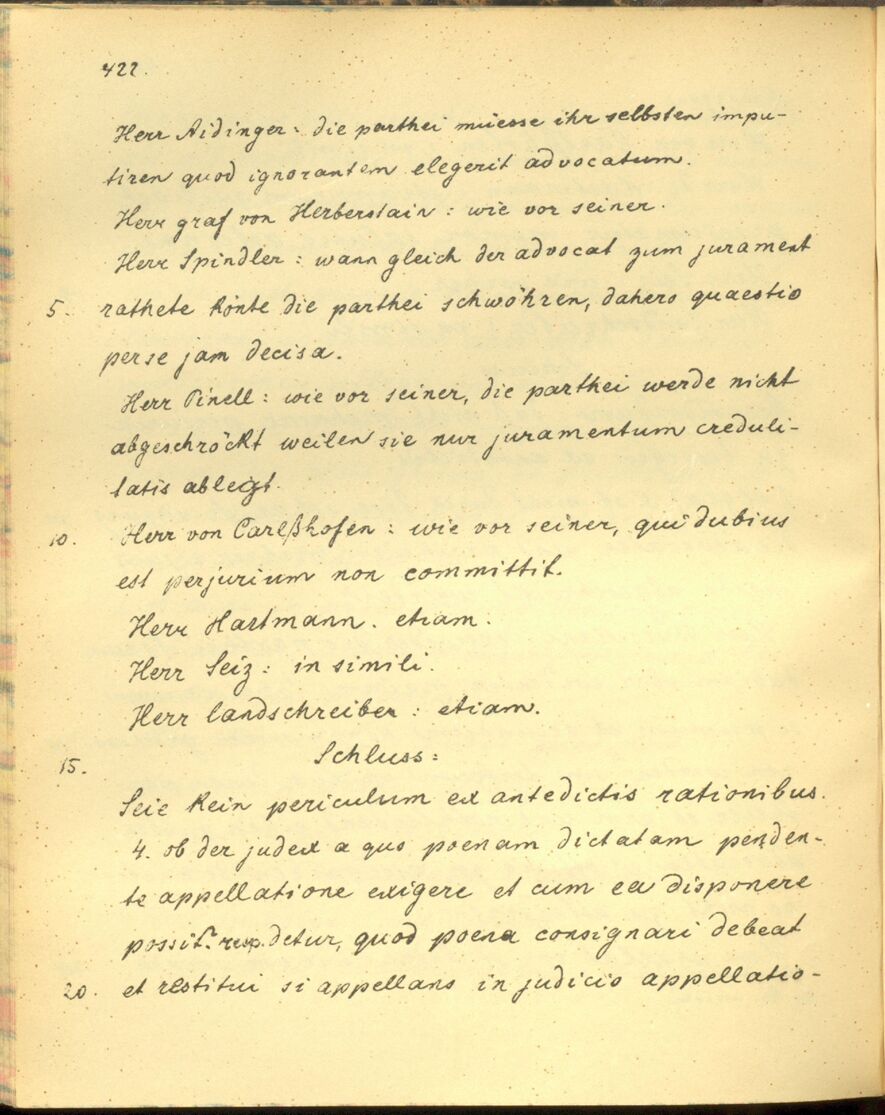 422.
Herr Aidinger: die parthei müesse ihr selbsten impu-
tiren quod ignorantem elegerit advocatum.
Herr graf von Herberstain: wie vor seiner.
Herr Spindler: wann gleich der advocat zum jurament
5. rathete könte die parthei schwöhren, dahero quaestio
per se jam decisa.
Herr Pinell: wie vor seiner, die parthei werde nicht
abgeschröckt weilen sie nur juramentum creduli-
tatis ableigt.
10. Herr von Carlßhofen: wie vor seiner, qui dubius
est perjurium non committit.
Herr Hartmann. etiam.
Herr Seiz: in simili.
Herr landschreiber: etiam.
15. Schluss:
Seie kein periculum ex antedictis rationibus.
4. ob der judex a quo poenam dictatam penden-
te appellatione exigere et cum ea disponere
possit? resp. detur, quod poena consignari debeat
20. et restitui si appellans in judicio appellatio-